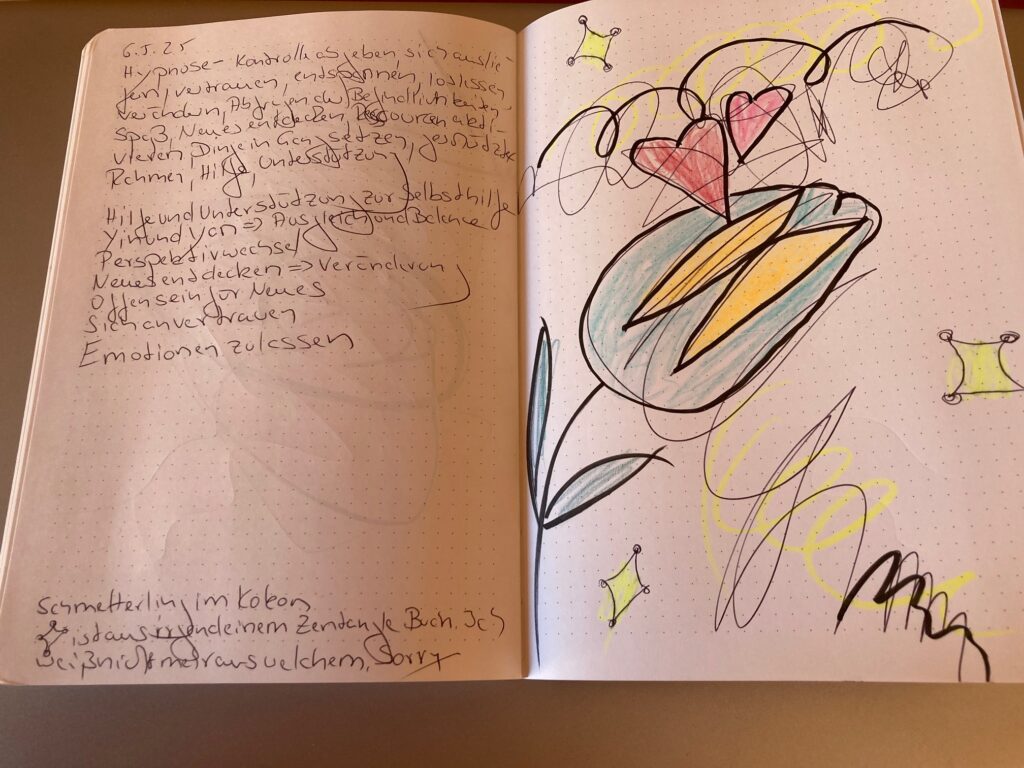 6.5.25
Hypnose - Kontrolle abgeben, sich auslie-
fern, vertrauen, entspannen, loslassen
verändern, Abfragen der Befindlichkeiten,
Spaß, Neues entdecken, Ressourcen akti-
vieren, Dinge in Gang setzen, geschützter
Rahmen, Hilfe, Unterstützung
Hilfe und Unterstützung zur Selbsthilfe
Yin und Yan => Ausgleich und Balance
Perspektivwechsel
Neues entdecken => Verändern
Offen sein für Neues
Sich anvertrauen
Emotionen zulassen
Schmetterling im Kokon
ist aus irgendeinem Zentangle Buch. Ich
weiß nicht mehr aus welchem, Sorry